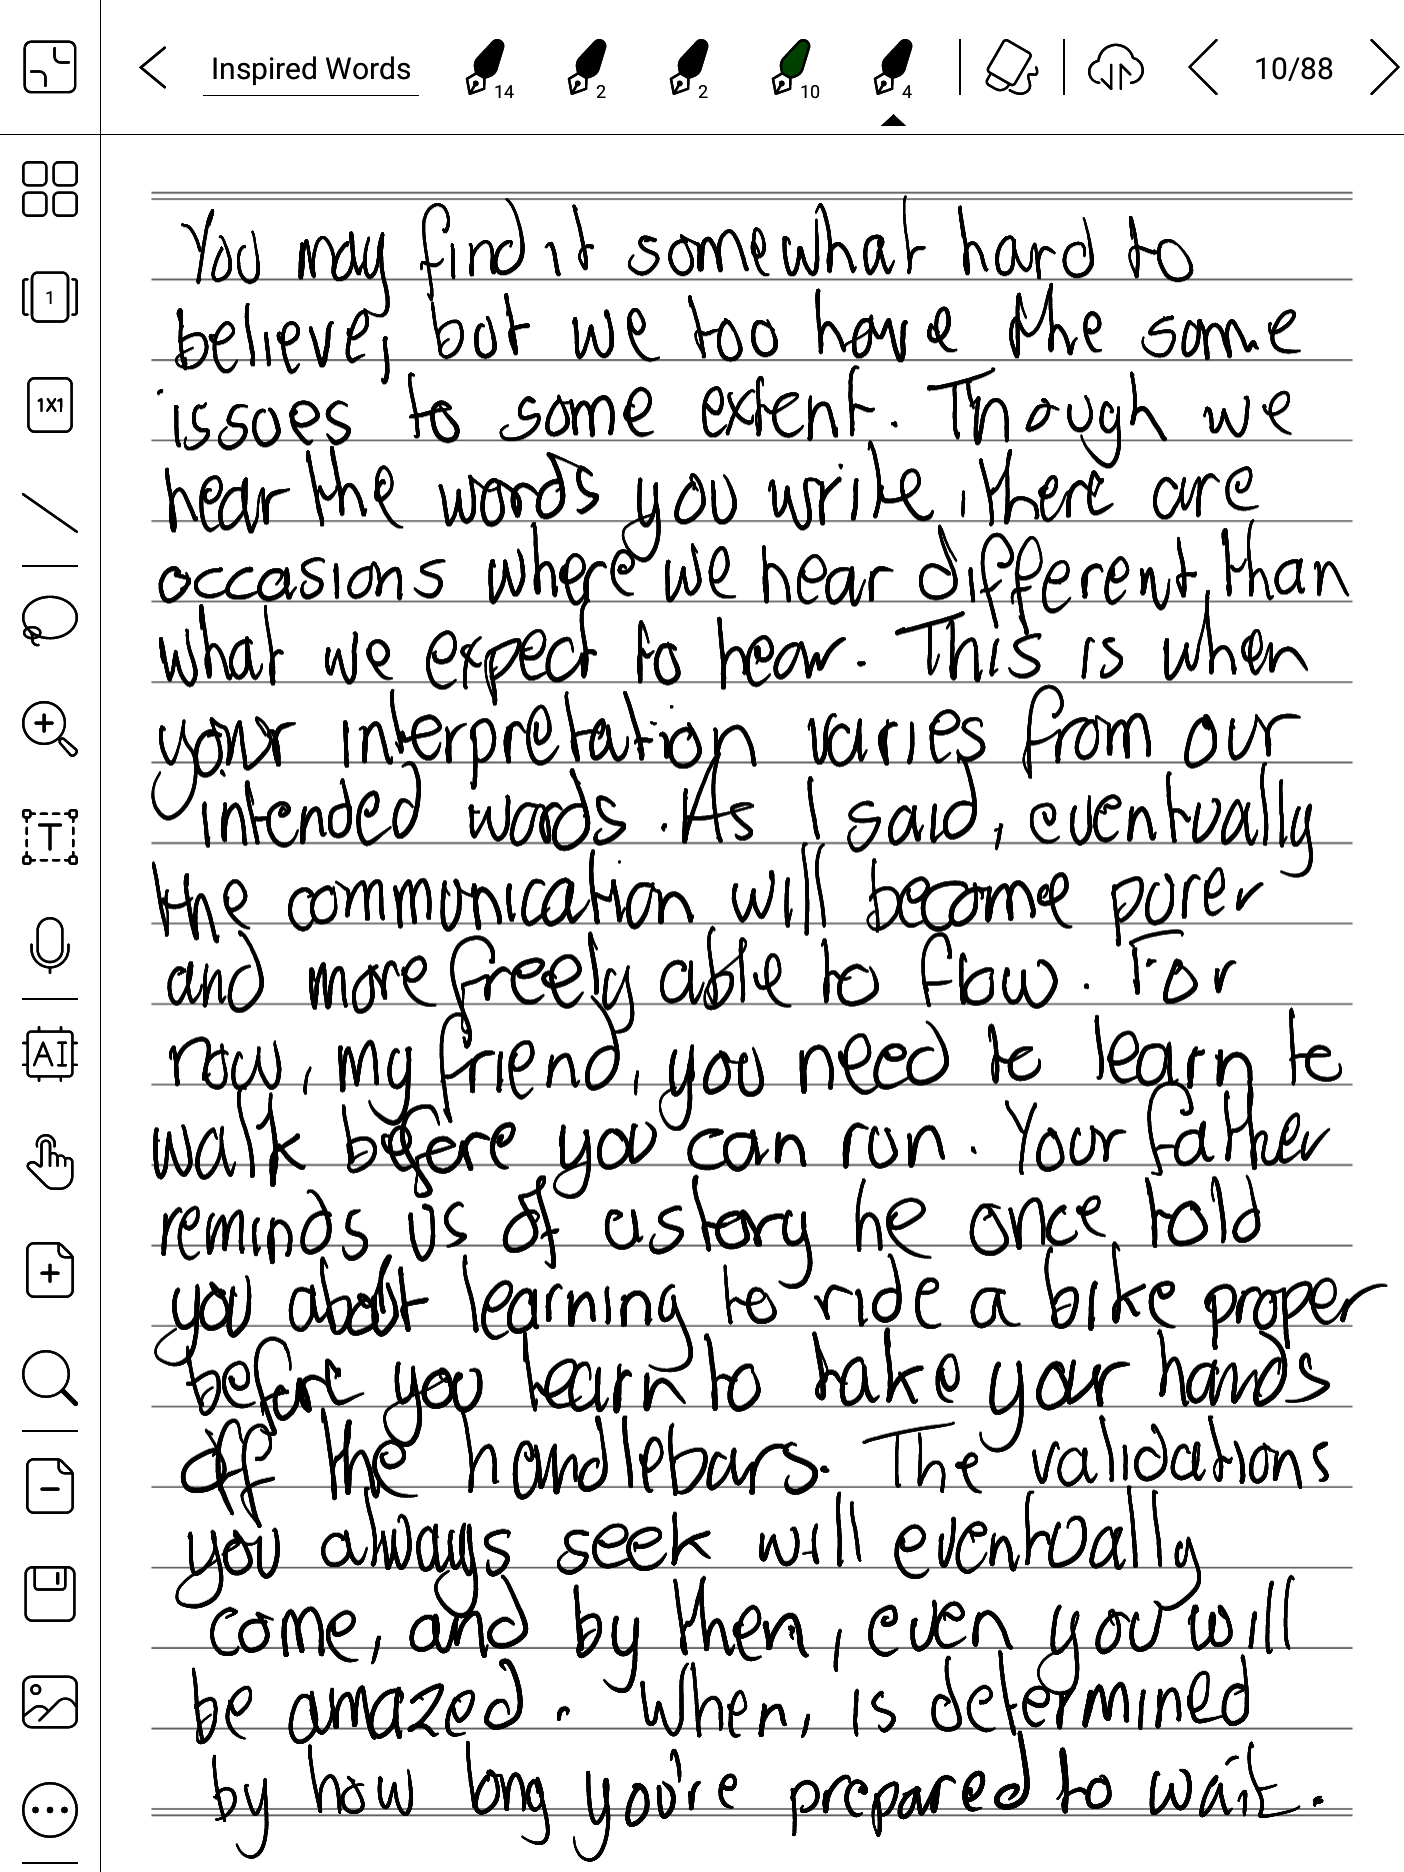 Inspired Words
14
2
2
10
4
10/88
1
1X1
T
AI
You may find it somewhat hard to
believe, but we too have the same
issues to some extent. Though we
hear the words you write, there are
occasions where we hear different than
what we expect to hear. This is when
your interpretation varies from our
intended words. As I said, eventually
the communication will become purer
and more freely able to flow. For
now, my friend, you need to learn to
walk before you can run. Your father
reminds us of a story he once told
you about learning to ride a bike proper
before you learn to take your hands
off the handlebars. The validations
you always seek will eventually
come, and by then, even you will
be amazed. When, is determined
by how long you're prepared to wait.